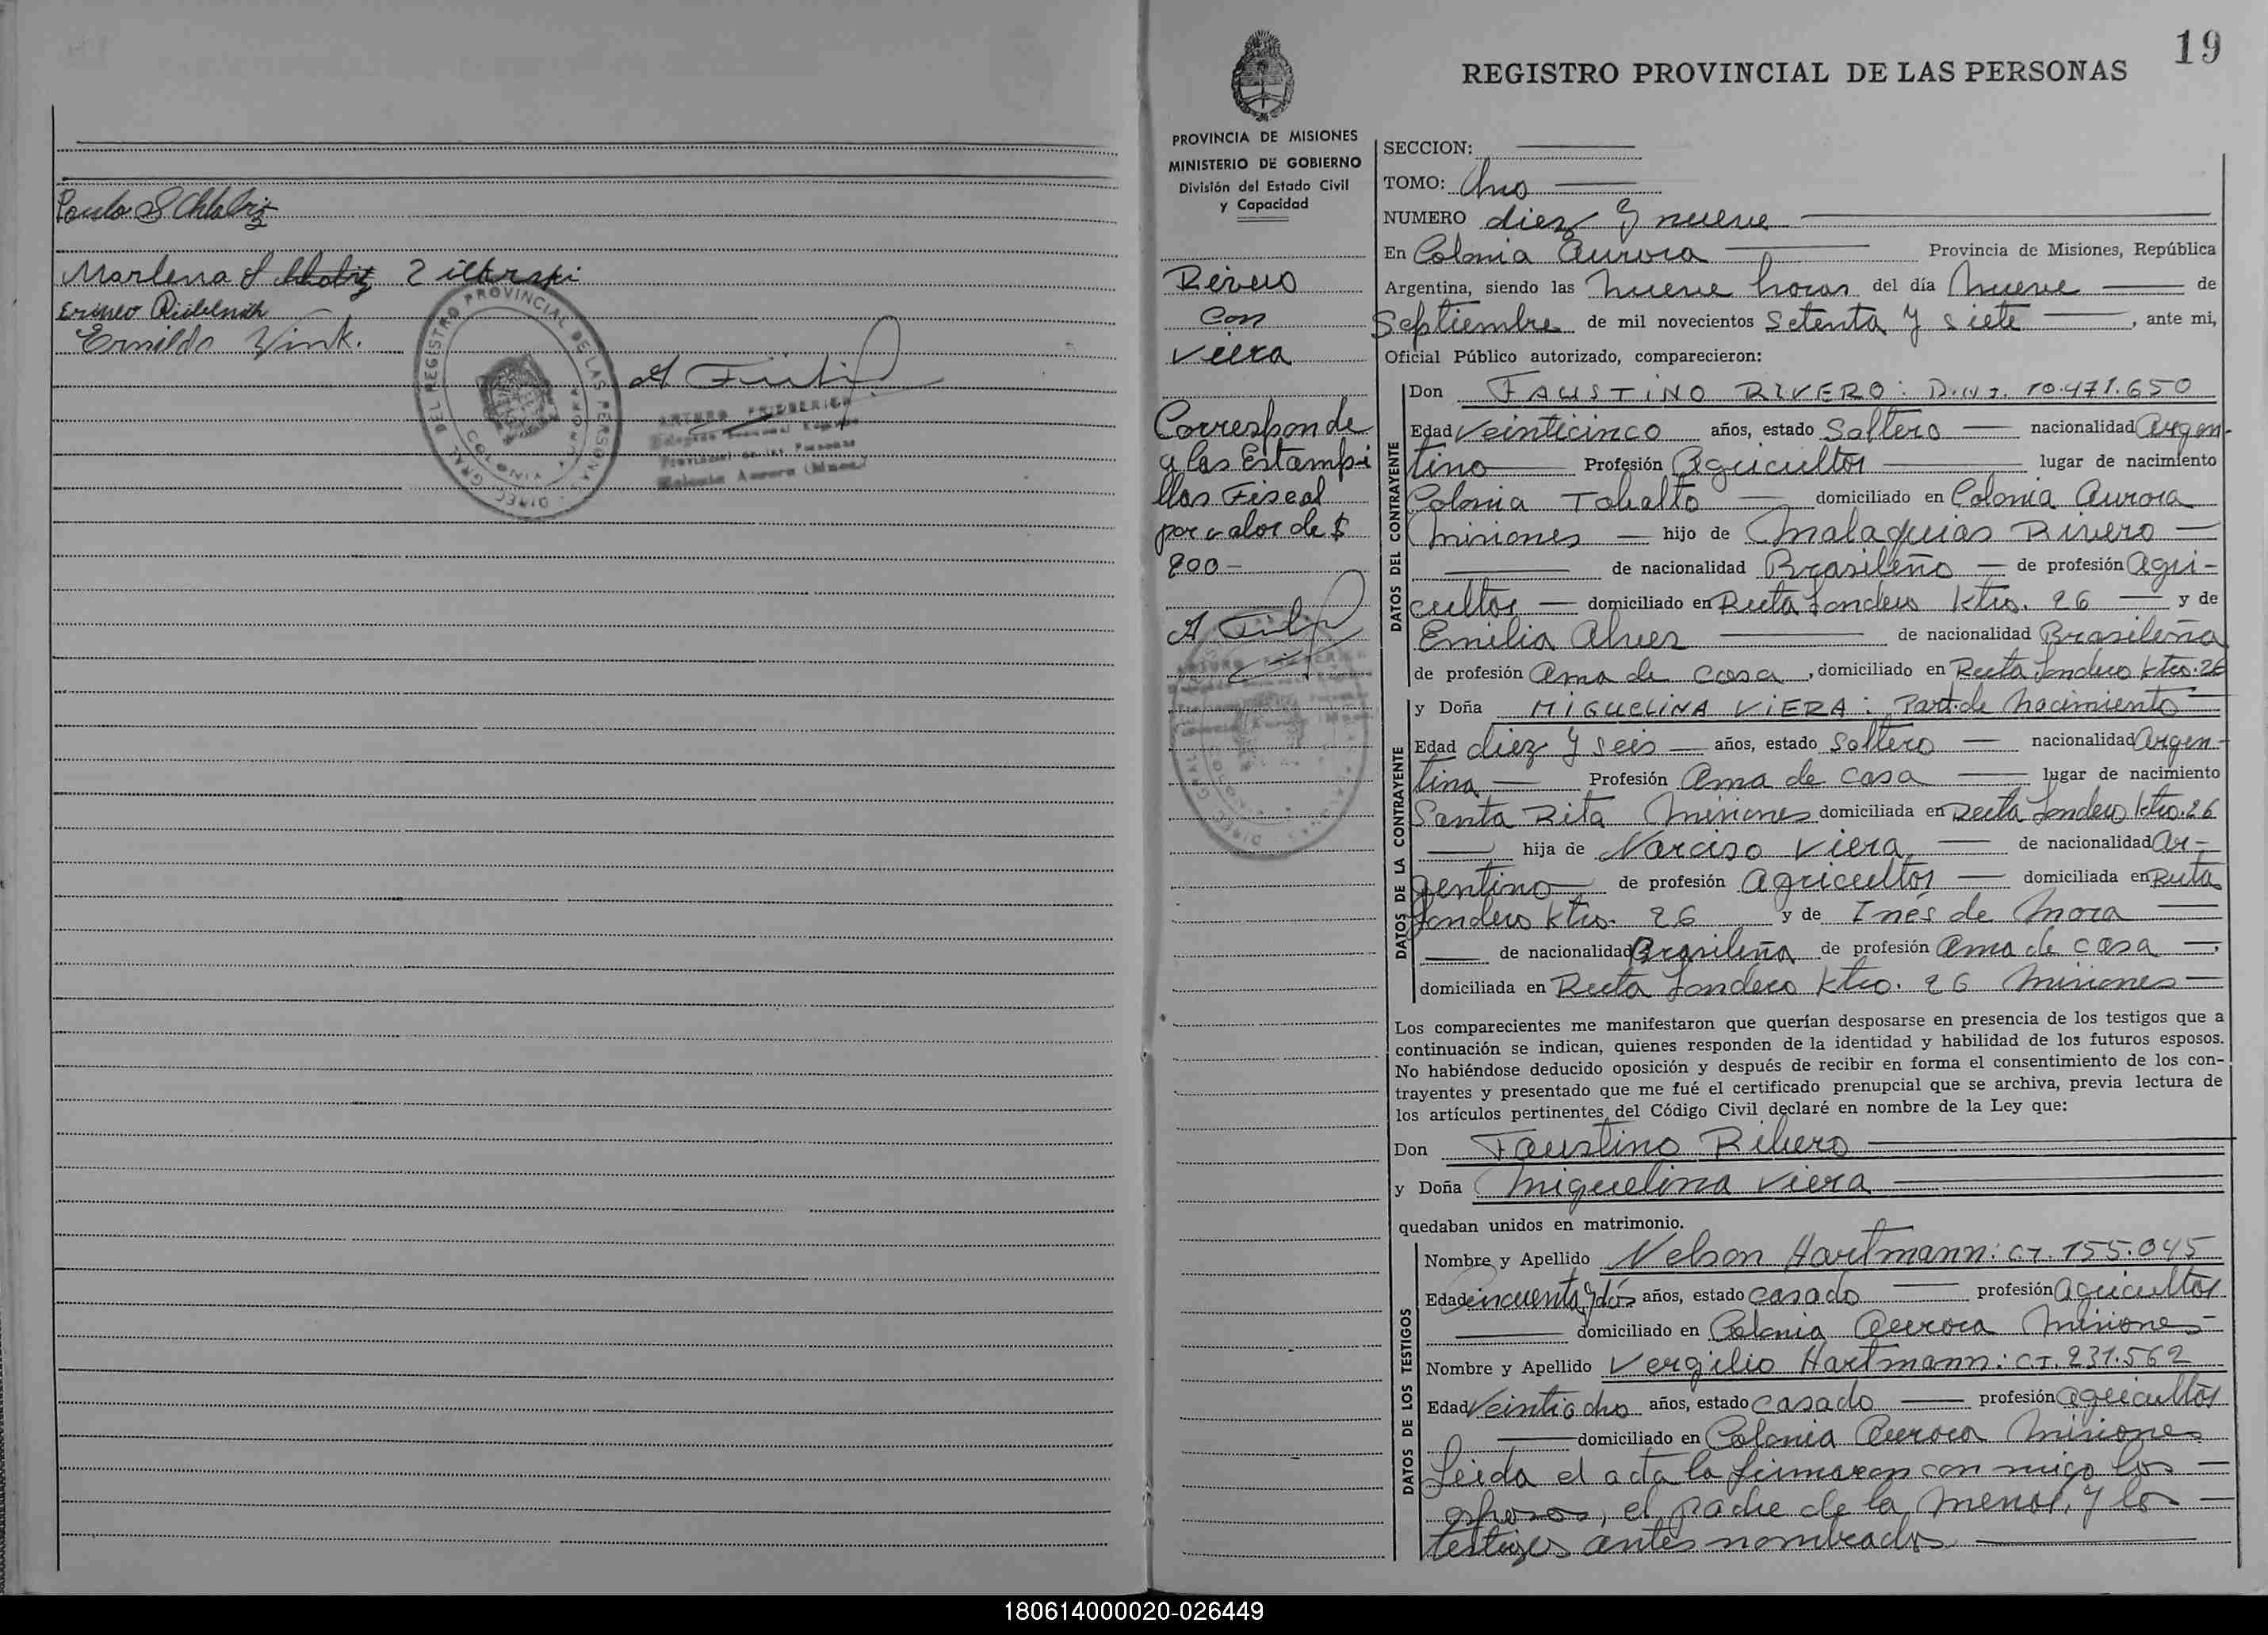 Paulo Schlabiz
Marlena Schlabiz
Ernildo Zink.
DIREC. GRAL. DEL REGISTRO PROVINCIAL DE LAS PERSONAS
ARTURO FRIDBERICH
Provincial de las Personas
Colonia Aurora (Mnes.)
19
REGISTRO PROVINCIAL DE LAS PERSONAS
PROVINCIA DE MISIONES
MINISTERIO DE GOBIERNO
División del Estado Civil
y Capacidad
Rivero
con
Viera
Corresponde
a las Estampi
llas Fiscal
por valor de $
800-
SECCION:
TOMO: Uno
NUMERO diez y nueve
En Colonia Aurora Provincia de Misiones, República
Argentina, siendo las nueve horas del día nueve de
Septiembre de mil novecientos Setenta y siete, ante mi,
Oficial Público autorizado, comparecieron:
DATOS DEL CONTRAYENTE
Don FAUSTINO RIVERO: D.N.I. 10.471.650
Edad Veinticinco años, estado Soltero nacionalidad Argen-
tino Profesión Agricultor lugar de nacimiento
Colonia Tobalto domiciliado en Colonia Aurora
Misiones hijo de Malaquias Rivero
de nacionalidad Brasileño de profesión Agri-
cultor domiciliado en Ruta Londero Ktro. 26 y de
Emilia Alves de nacionalidad Brasileña
de profesión Ama de casa, domiciliado en Ruta Londero Ktro. 26
DATOS DE LA CONTRAYENTE
y Doña MIGUELINA VIERA: Part. de Nacimiento
Edad diez y seis años, estado Soltero nacionalidad Argen-
tina Profesión Ama de casa lugar de nacimiento
Santa Rita Misiones domiciliada en Ruta Londero Ktro. 26
hija de Narciso Viera de nacionalidad Ar-
gentino de profesión Agricultor domiciliada en Ruta
Londero Ktro. 26 y de Inés de Mora
de nacionalidad Brasileña de profesión Ama de casa,
domiciliada en Ruta Londero Ktro. 26 Misiones
Los comparecientes me manifestaron que querían desposarse en presencia de los testigos que a
continuación se indican, quienes responden de la identidad y habilidad de los futuros esposos.
No habiéndose deducido oposición y después de recibir en forma el consentimiento de los con-
trayentes y presentado que me fué el certificado prenupcial que se archiva, previa lectura de
los artículos pertinentes del Código Civil declaré en nombre de la Ley que:
Don Faustino Ribero
y Doña Miguelina Viera
quedaban unidos en matrimonio.
DATOS DE LOS TESTIGOS
Nombre y Apellido Nelson Hartmann: C.I. 155.045
Edad cincuenta y dós años, estado casado profesión Agricultor
domiciliado en Colonia Aurora Misiones
Nombre y Apellido Vergilio Hartmann: C.I. 231.562
Edad Veintiocho años, estado casado profesión agricultor
domiciliado en Colonia Aurora Misiones
Leida el acta la firmaron con migo los
esposos, el padre de la menor, y los
testigos antes nombrados
180614000020-026449